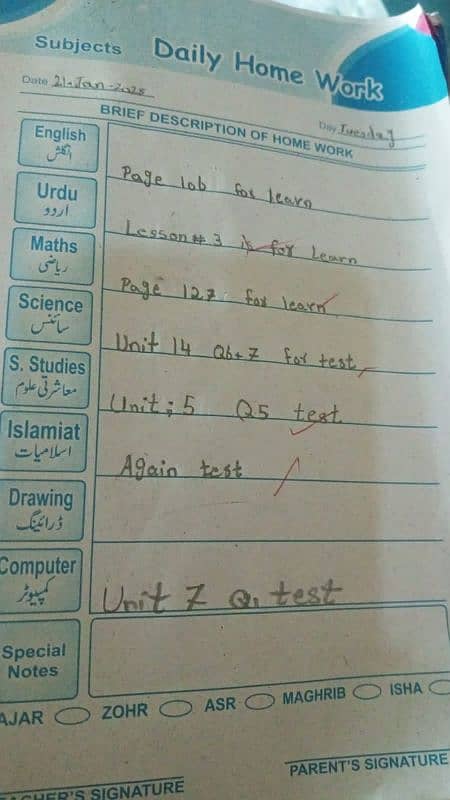 Subjects Daily Home Work
Date 21-Jan-2025 Day Tuesday
BRIEF DESCRIPTION OF HOME WORK
English
انگلش
Page 106 for learn
Urdu
اردو
Lesson # 3 is for learn
Maths
ریاضی
Page 127 for learn
Science
سائنس
Unit 14 Q6+7 for test
S. Studies
معاشرتی علوم
Unit; 5 Q5 test
Islamiat
اسلامیات
Again test
Drawing
ڈرائینگ
Computer
کمپیوٹر
Unit 7 Q1 test
Special
Notes
AJAR ZOHR ASR MAGHRIB ISHA
ACHER'S SIGNATURE PARENT'S SIGNATURE